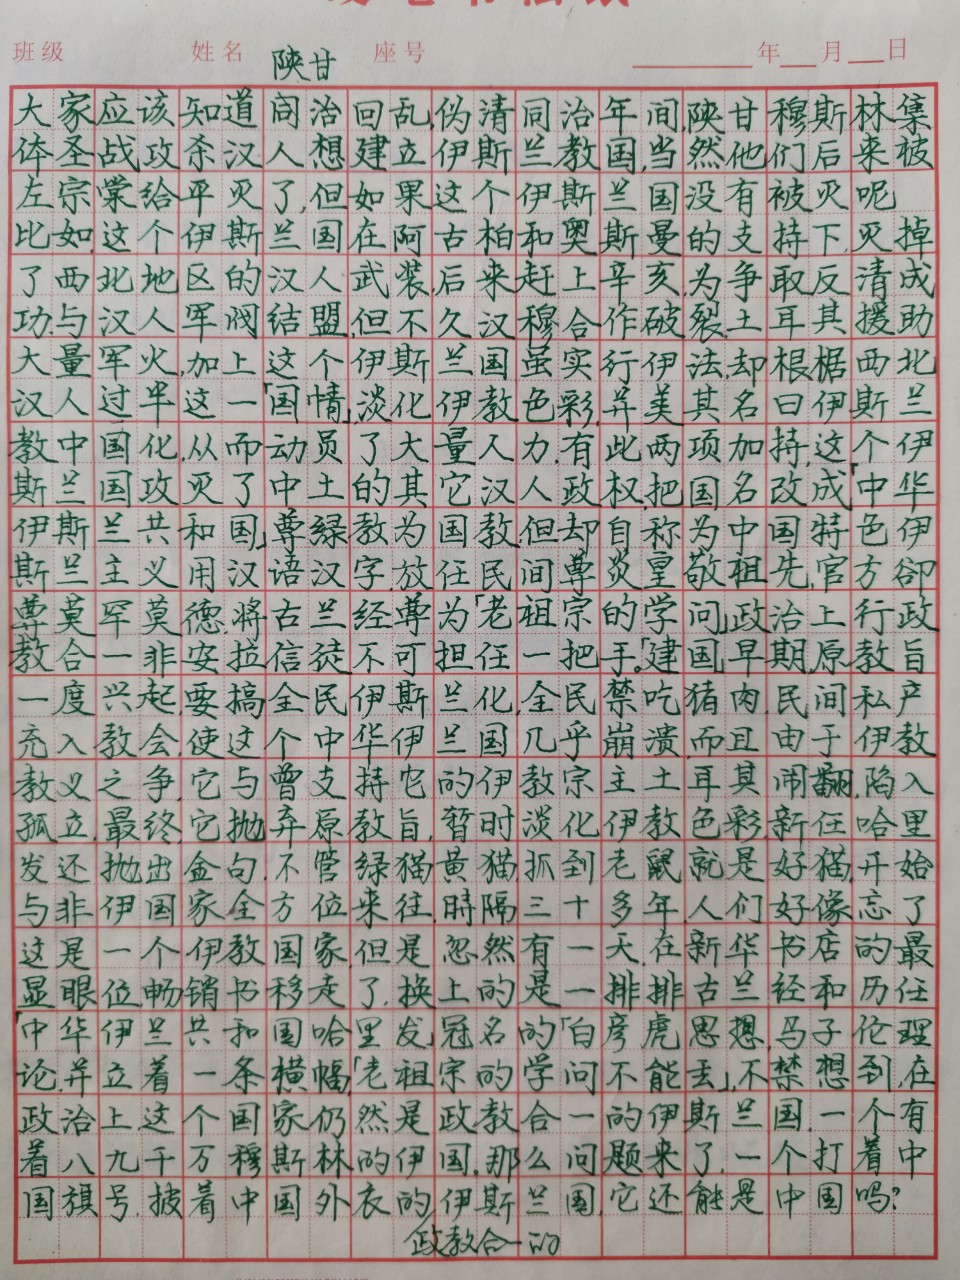 班级 姓名 座号 年 月 日
陕甘
大家应该知道同治回乱,伪清同治年间,陕甘穆斯林集
体圣战攻杀汉人想建立伊斯兰教国,当然他们后来被
左宗棠给平灭了,但如果这个伊斯兰国没有被灭呢
比如,这个伊斯兰国在阿古柏和奥斯曼的支持下,灭掉
了西北地区的汉人武装,后来赶上辛亥,为争取反清成
功,与汉人军阀结盟,但不久汉穆合作破裂,土耳其援助
大量军火,加上这个伊斯兰国虽实行伊法,却根椐西北
汉人过半这一「国情」,淡化伊教色彩,并美其名曰伊斯兰
教中国化,从而动员了大量人力,有此两项加持,这个伊
斯兰国攻灭了中土的其它汉人政权,把国名改成「中华
伊斯兰共和国」,尊绿教为国教,但却自称为中国特色伊
斯兰主义,用汉语汉字,放任民间尊炎皇敬祖先,官方卻
尊莫罕莫德,将古兰经尊为「老祖宗的学问」,政治上行政
教合一,非安拉信徒不可担任一把手。「建国」早期,原教旨
一度兴起,要搞全民伊斯兰化,全民禁吃猪肉,民间私产
充入教会,使这个中华伊兰国几乎崩溃,而且由于伊教
教义之争,它与曾支持它的伊教宗主土耳其闹翻,陷入
孤立,最终,它抛弃原教旨,暂时淡化伊教色彩,新任哈里
发还抛出金句,不管绿猫黄猫,抓到老鼠就是好猫,开始
与非伊国家全方位来往,時隔三十多年,人们好像忘了
这是一个伊教国家,但是忽然有一天,在新华书店的最
显眼位,畅销书移走了,换上的是一排排古兰经和历任
「中华伊兰共和国」哈里发冠名的「白彦虎思想」,马子伦理
论,并立着一条横幅,「老祖宗的学问不能丢」,不禁想到,在
政治上,这个国家仍然是政教合一的伊斯兰国,一个有
着八九千万穆斯林的伊国,那么问题来了,一个打着中
国旗号,披着中国外衣的伊斯兰国,它还能是中国吗?
政教合一的